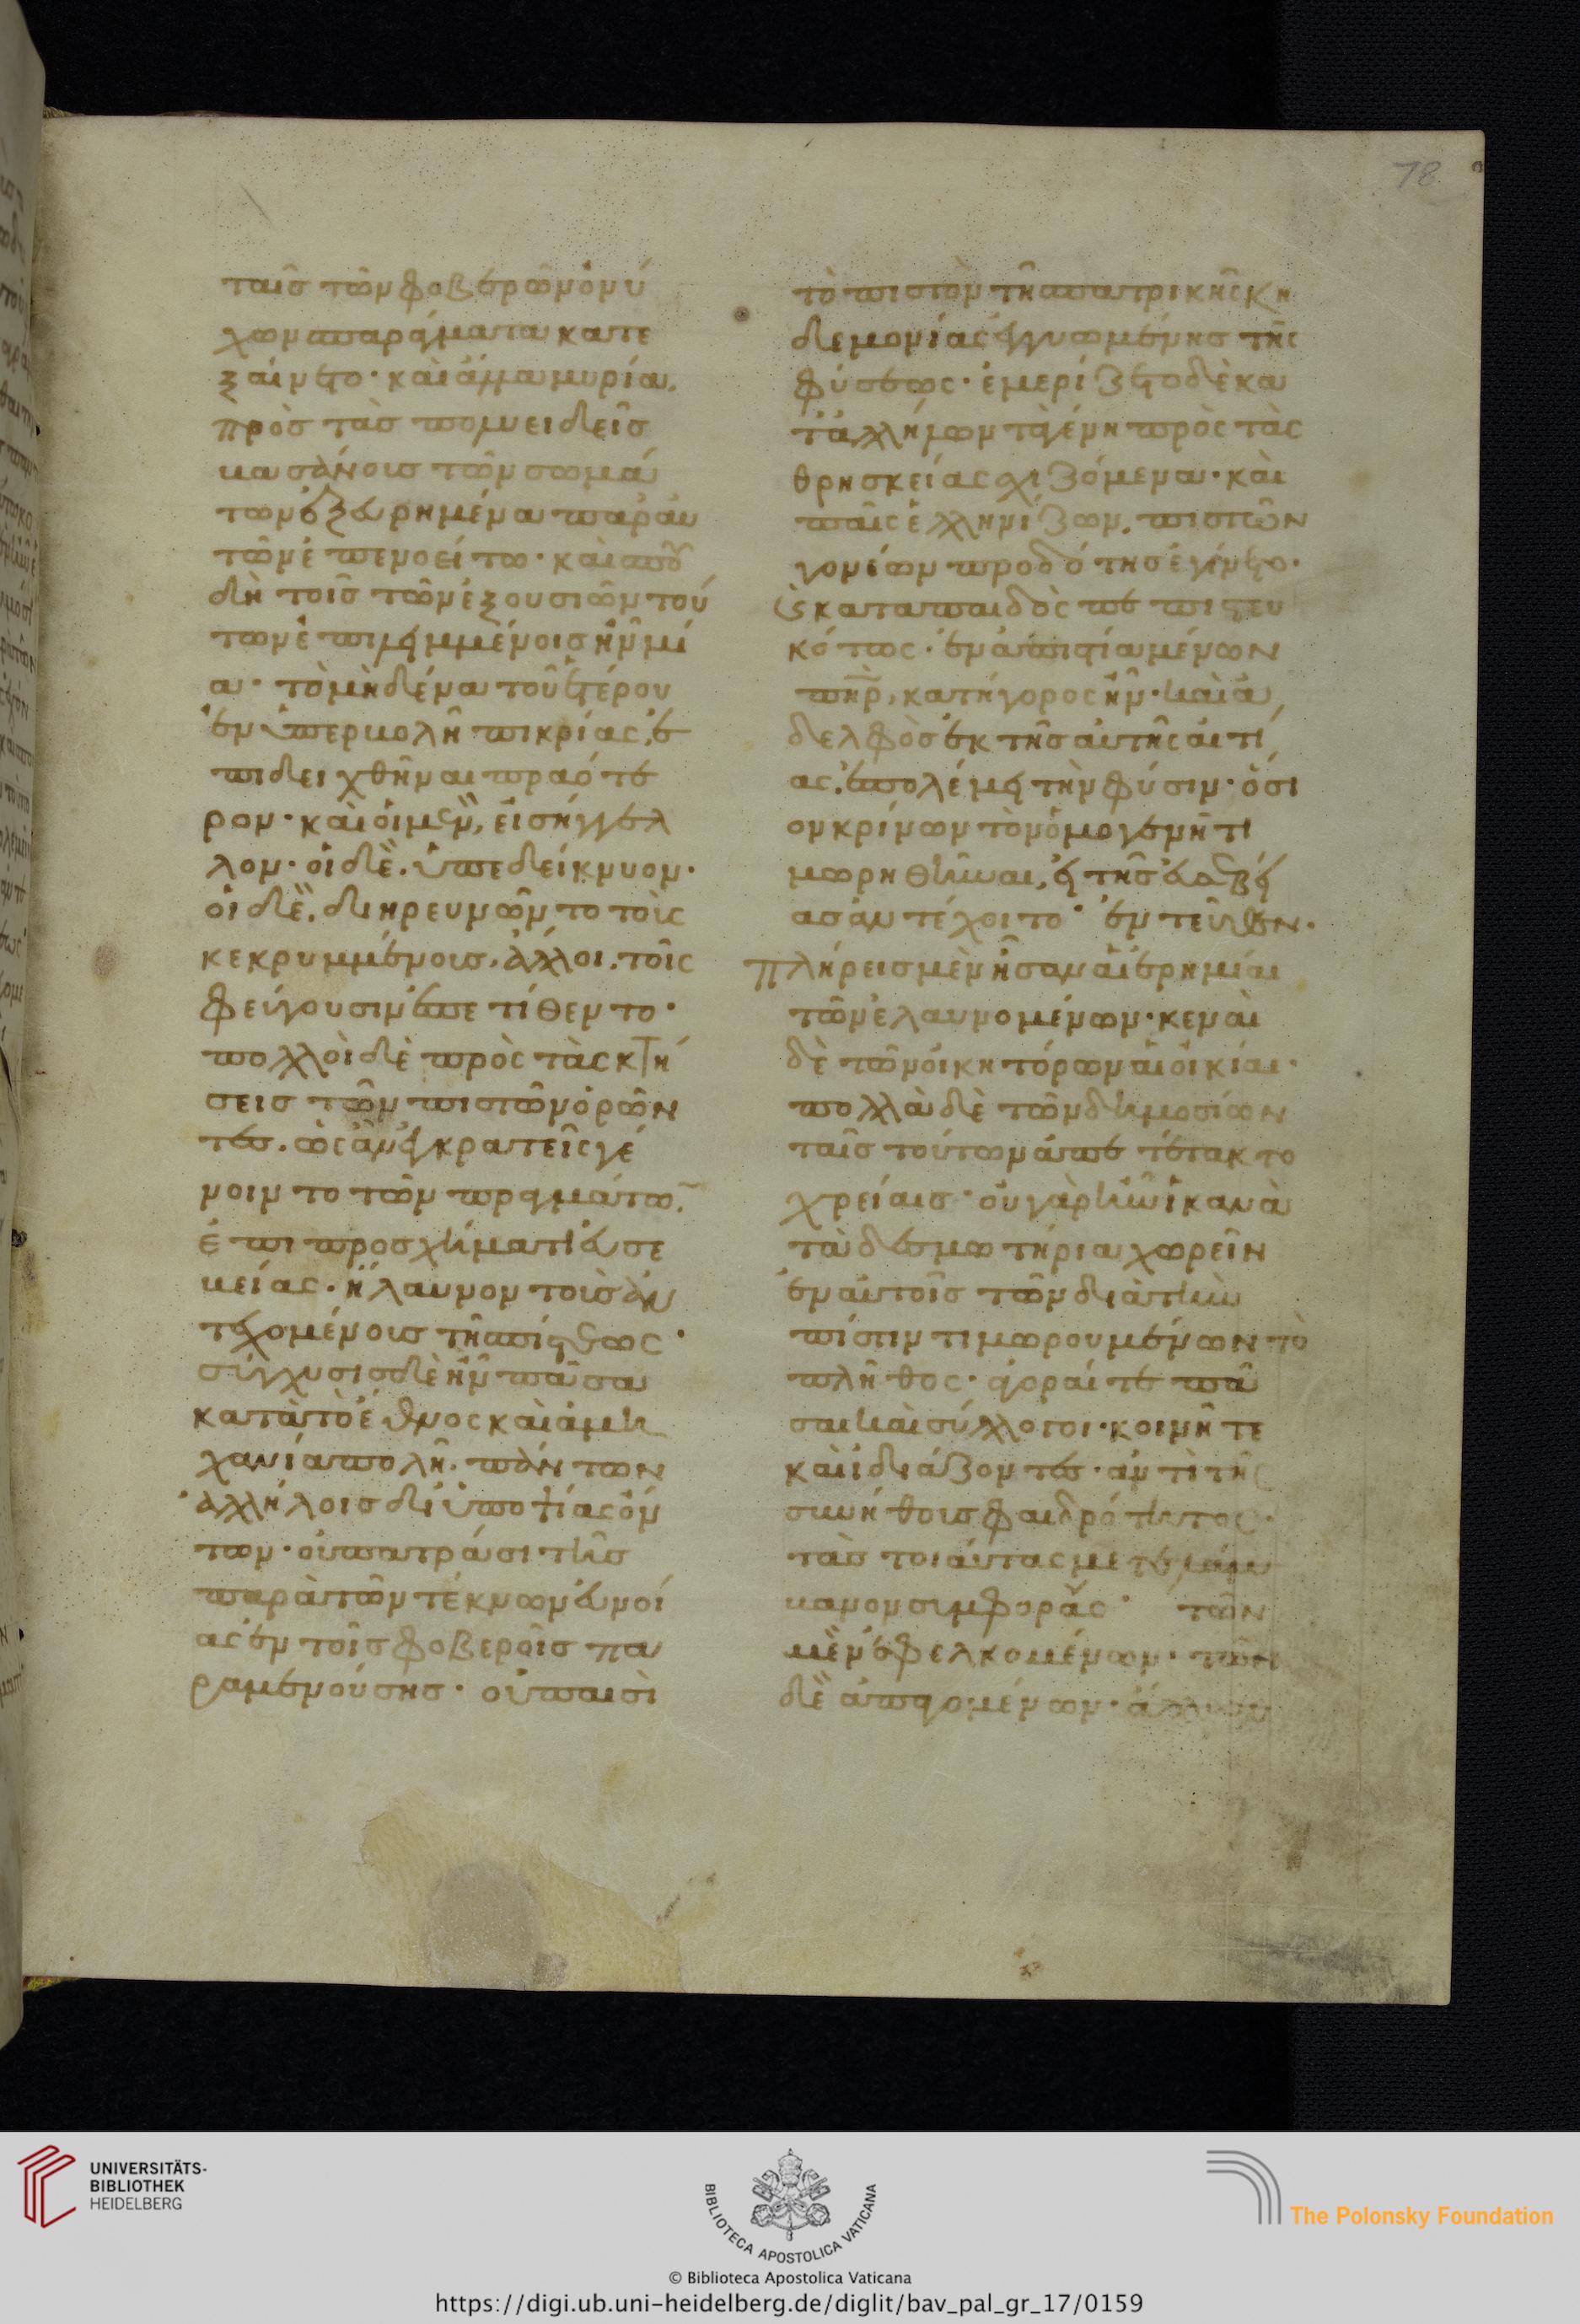 ταῖς τῶν φοβερῶν ὀνύ
χων σπαράγματα κατε
ξαίνετο· καὶ ἄλλα μυρία
πρὸς τὰς πολυειδεῖς
βασάνους τῶν σωμά
των ἐξευρημένα παρ αὐ
τῶν ἐπενοεῖτο· καὶ σπου
δὴ τοῖς τῶν ἐξουσιῶν τού
των ἐπιλημμένοις ἦν μί
α· τὸ μηδένα τοῦ ἑτέρου
ἐν ὑπερβολῇ πικρίας, ἐ
πιδειχθῆναι πραότε
ρον· καὶ οἱ μὲν, εἰσήγγελ
λον· οἱ δὲ. ὑπεδείκνυον·
οἱ δὲ. διηρευνῶντο τοὺς
κεκρυμμένους, ἄλλοι. τοῖς
φεύγουσιν ἐπετίθεντο·
πολλοὶ δὲ πρὸς τὰς κτή
σεις τῶν πιστῶν ὁρῶν
τες. ὡς ἂν ἐγκρατεῖς γέ
νοιντο τῶν πραγμάτω̅
ἐπὶ προσχήματι εὐσε
βείας· ἤλαυνον τοὺς ἀν
τεχομένους τῆς πίστεως·
σύγχυσις δὲ ἦν πᾶσα
κατὰ τὸ ἔθνος καὶ ἀμη
χανία πολλὴ· πάντων
ἀλλήλοις δι ὑποψίας ὄν
των· οὐ πατράσι τῆς
παρὰ τῶν τέκνων εὐνοί
ας ἐν τοῖς φοβεροῖς πα
ραμενούσης· οὐ παισὶ
τὸ πιστὸν τῆς πατρικῆς κη
δεμονίας ἐγγυωμένης τῆς
φύσεως· ἐμερίζετο δὲ κα
τ ἀλλήλων τὰ γένη πρὸς τὰς
θρησκείας σχιζόμενα· καὶ
παῖς ἑλληνίζων, πιστῶν
γονέων προδότης ἐγίνετο·
καὶ κατὰ παιδὸς πεπιστευ
κότος· ἐν ἀπιστίᾳ μένων
πη̅ρ, κατήγορος ἦν· καὶ ἀ
δελφὸς ἐκ τῆς αὐτῆς αἰτί
ας, ἐπολέμει τὴν φύσιν· ὅσι
ον κρίνων τὸν ὁμογενῆ τι
μωρηθῆναι, εἰ τῆς εὐσεβεί
ας ἀντέχοιτο· ἐντεῦθεν·
πλήρεις μὲν ἦσαν αἱ ἐρημίαι
τῶν ἐλαυνομένων· κεναὶ
δὲ τῶν οἰκητόρων αἱ οἰκίαι·
πολλὰ δὲ τῶν δημοσίων
ταῖς τούτων ἀπετέτακτο
χρείαις· οὐ γὰρ ἦν ἱκανὰ
τὰ δεσμωτήρια χωρεῖν
ἐν αὐτοῖς τῶν διὰ τὴν
πίστιν τιμωρουμένων τὸ
πλῆθος· ἀγοραί τε πᾶ
σαι καὶ σύλλογοι· κοινῇ τε
καὶ ἰδιάζοντες· ἀντὶ τῆς
συνήθους φαιδρότητος·
τὰς τοιαύτας μετελάμ
βανον συμφοράς· τῶν
μὲν ἐφελκομένων· τῶν
δὲ ἀπαγομένων· ἄλλων
78
UNIVERSITÄTS-
BIBLIOTHEK
HEIDELBERG
BIBLIOTECA APOSTOLICA VATICANA
The Polonsky Foundation
© Biblioteca Apostolica Vaticana
https://digi.ub.uni-heidelberg.de/diglit/bav_pal_gr_17/0159